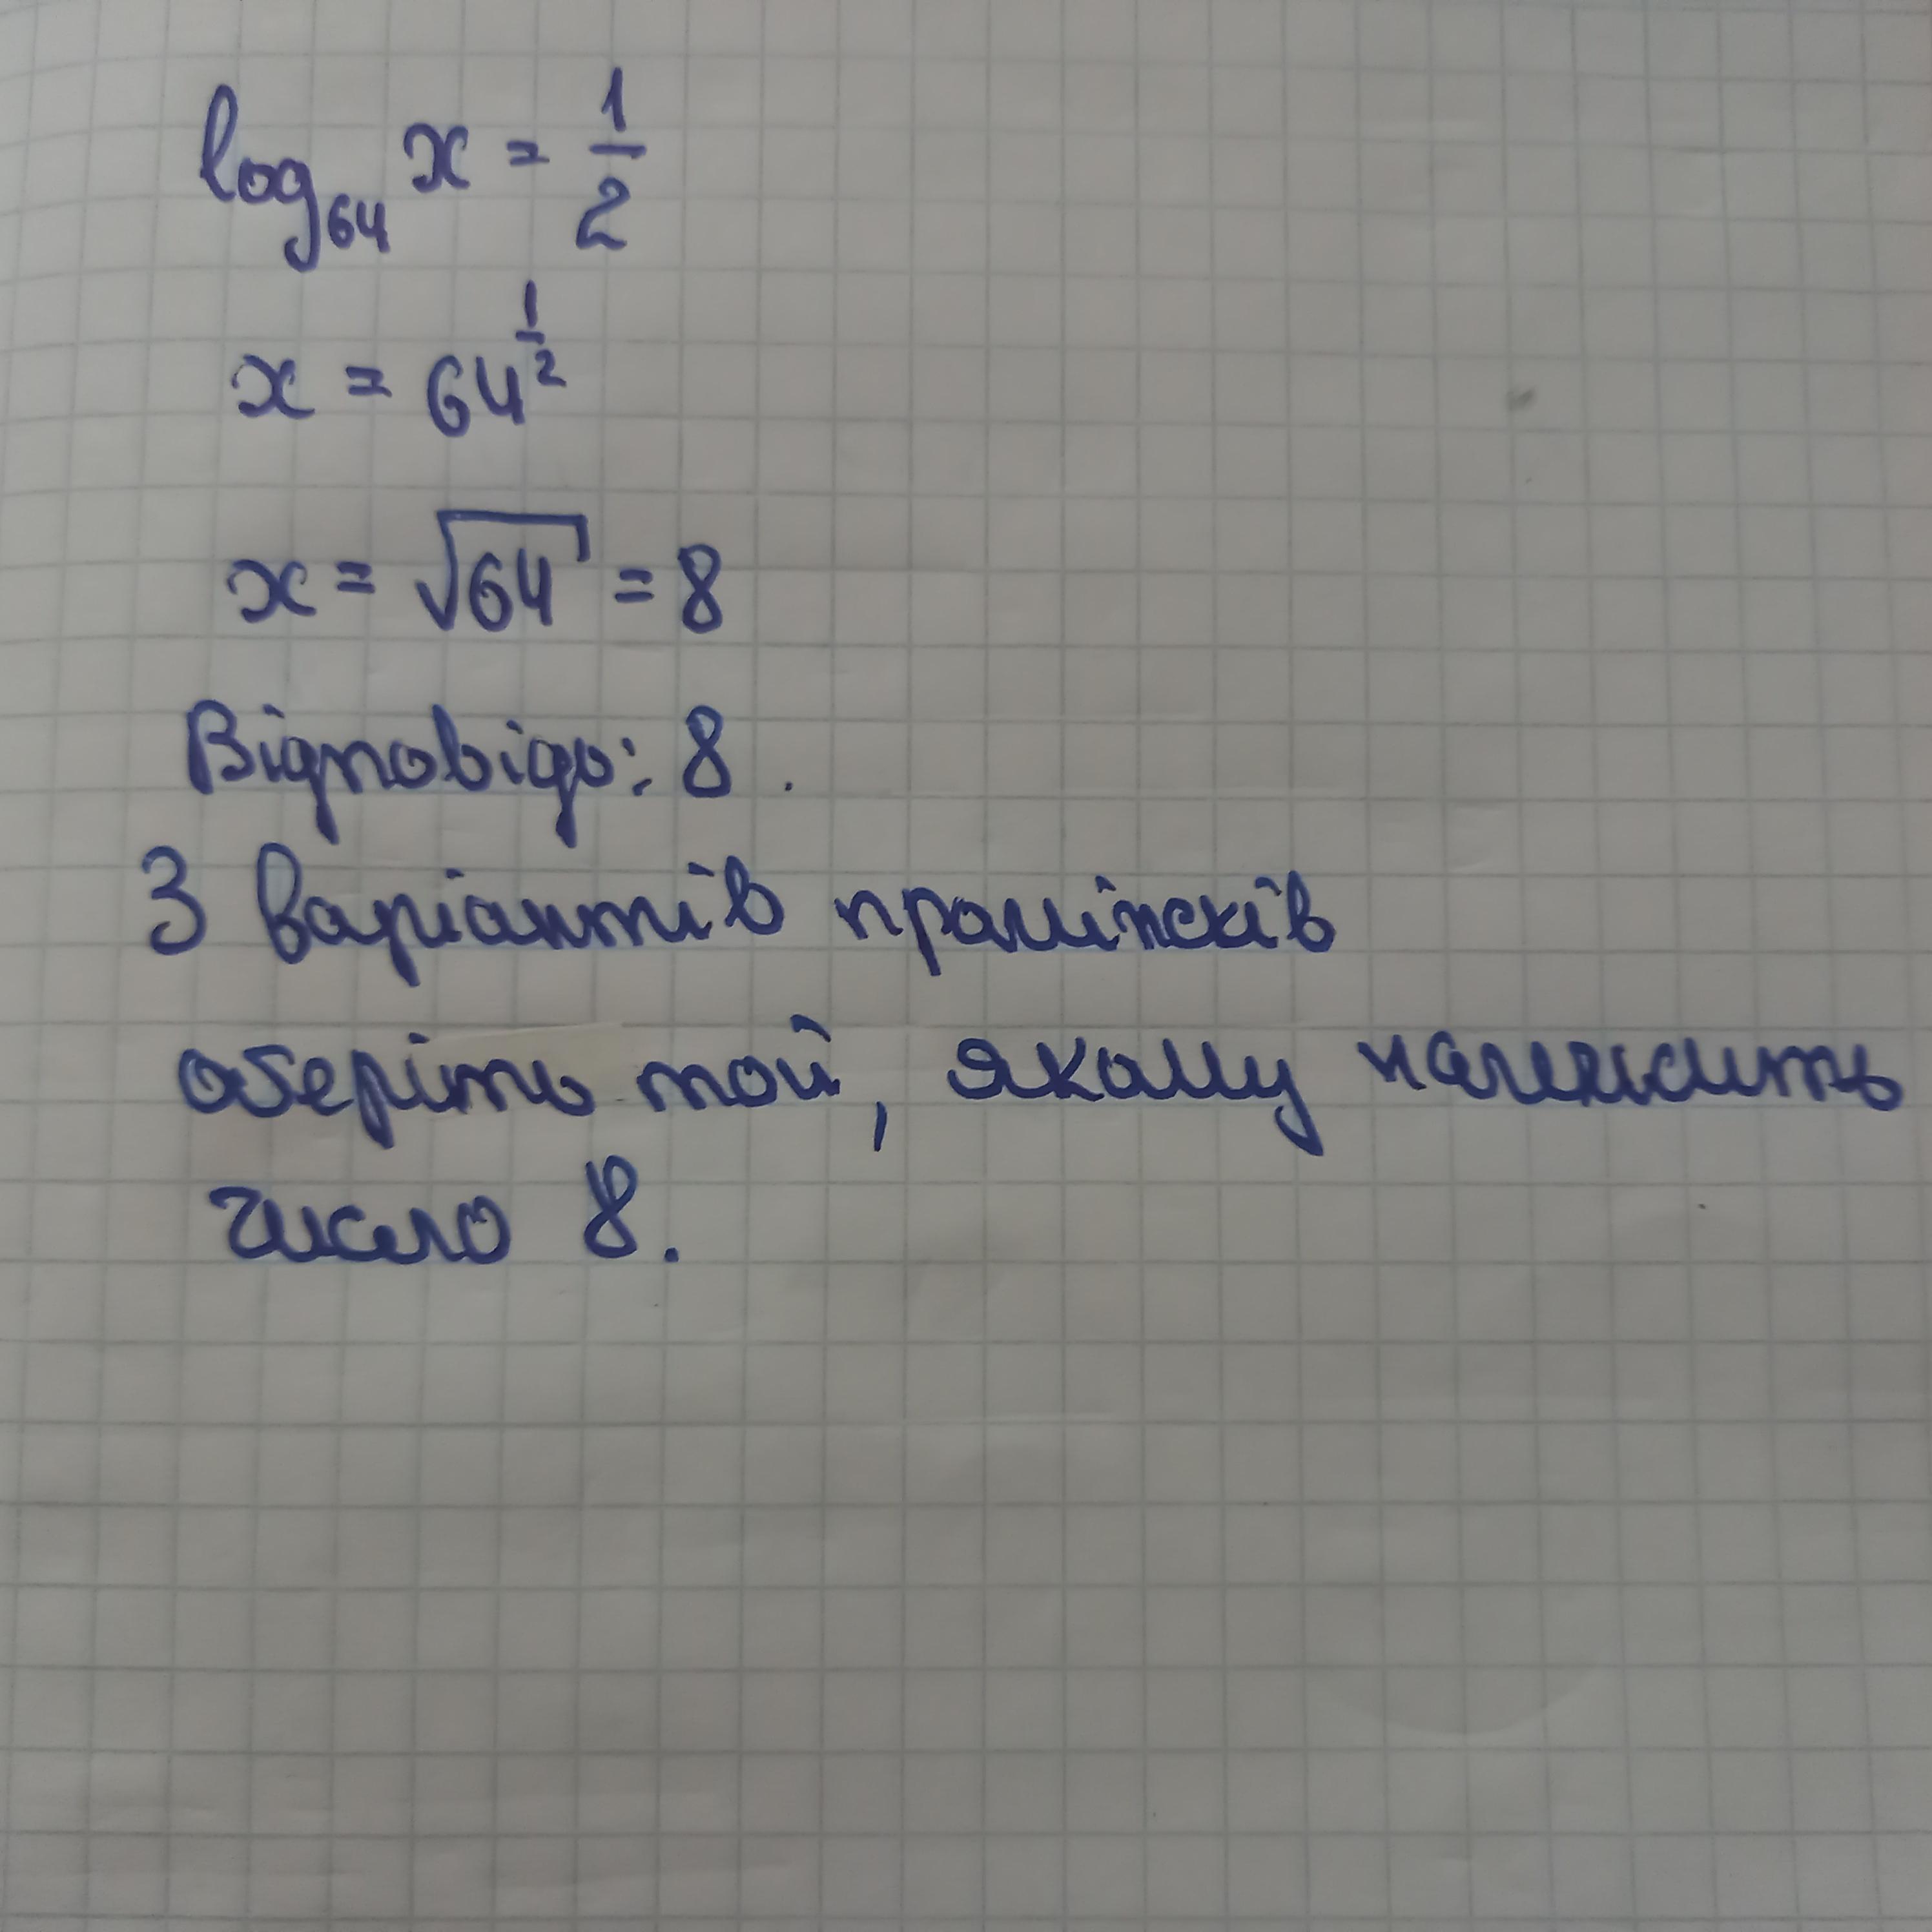 log₆₄ x = 1/2
x = 64^(1/2)
x = √64 = 8
Відповідь: 8.
З варіантів проміжків
оберіть той, якому належить
число 8.